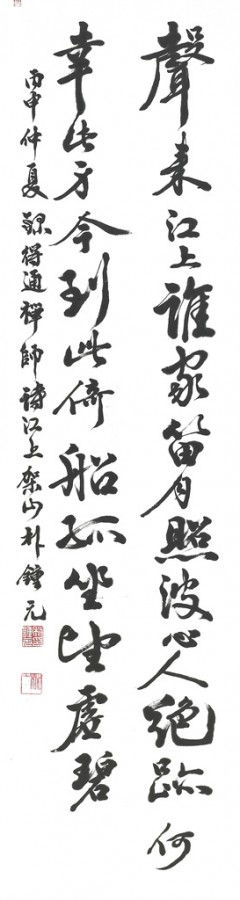 聲來江上誰家笛月照波心人絶跡何
幸此身今到此倚船孤坐望虛碧
丙申仲夏錄得通禪師詩江上 山朴鍾元